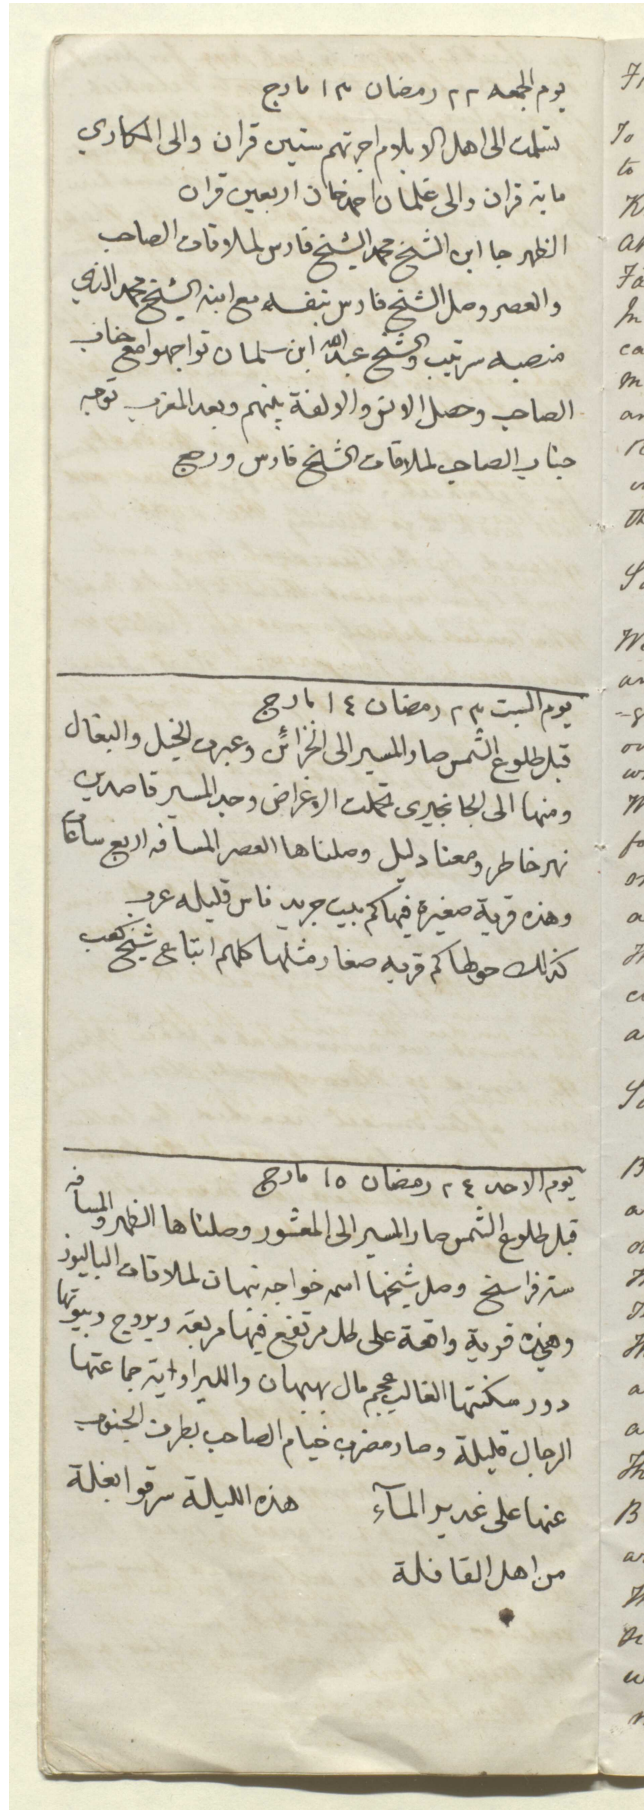 يوم الجمعه ٢٢ رمضان ١٣ مارج
تسلمت الى اهل الابلام اجرتهم ستين قران والى المكاري
ماية قران والى غلمان احمد خان اربعين قران
الظهر جا ابن الشيخ محمد الشيخ فارس لملاقات الصاحب
والعصر وصل الشيخ فارس بنفسه مع ابنه الشيخ محمد الذي
منصبه سرتيب والشيخ عبدالله ابن سلمان تواجهوا مع جناب
الصاحب وحصل الانس والالفة بينهم وبعد المغرب توجه
جناب الصاحب لملاقات الشيخ فارس ورجع
يوم السبت ٢٣ رمضان ١٤ مارج
قبل طلوع الشمس صار المسير الى الخزائن وعبرت الخيل والبغال
ومنها الى الجانجيرى تحملت الاغراض وجد المسير قاصدين
نهر خاطر ومعنا دليل وصلناها العصر المسافه اربع ساعات
وهذه قرية صغيرة فيها كم بيت جريد ناس قليله عرب
كذلك حولها كم قريه صغار مثلها كلهم اتباع شيخ كعب
يوم الاحد ٢٤ رمضان ١٥ مارج
قبل طلوع الشمس صار المسير الى المعشور وصلناها الظهر والمسافه
سته فراسخ وصل شيخها اسمه خواجه نبهان لملاقات الباليوز
وهذه قرية واقعة على طل مرتفع فيها مربعة وبروج وبيوتها
دور سكنتها الغالب عجم مال بهبهان والليراوية جماعتها
الرجال قليلة وصار مضرب خيام الصاحب بطرف الجنوب
عنها على غدير المآء هذه الليلة سرقوا بغلة
من اهل القافلة
Fr
To
to
K
an
Fa
In
ca
m
an
th
So
W
an
ou
w
fo
or
a
a
B
a
a
a
Th
B
an
w